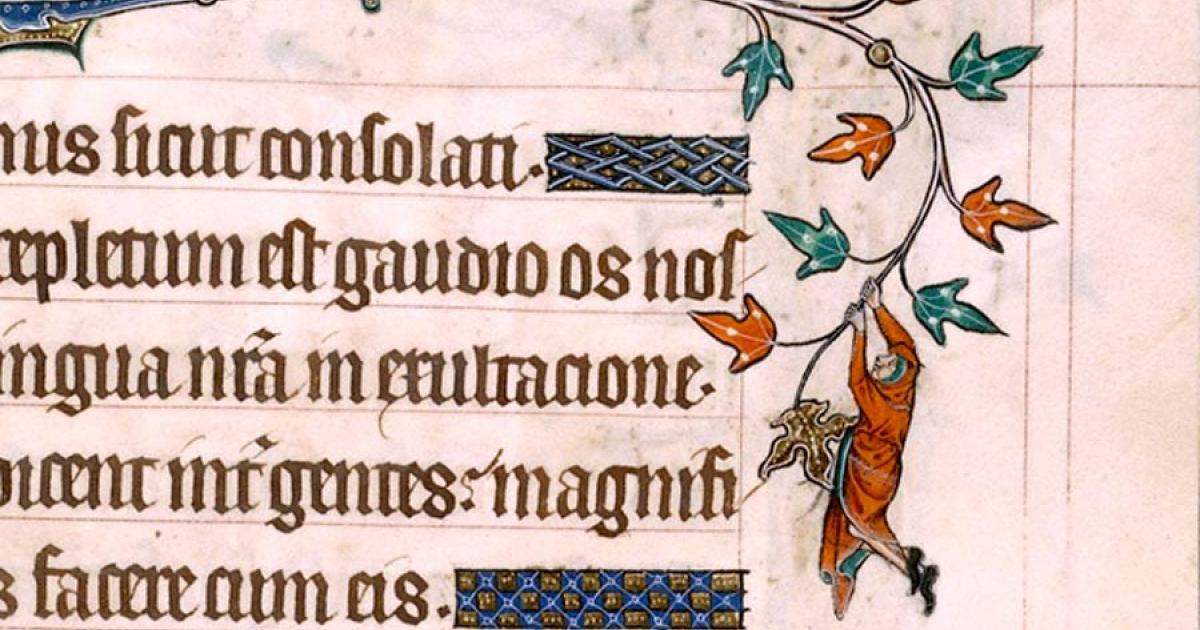 nus sicut consolati.
repletum est gaudio os nos
lingua nr̃a in exultacione.
dicent int̃ gentes: magnifi
s facere cum eis.